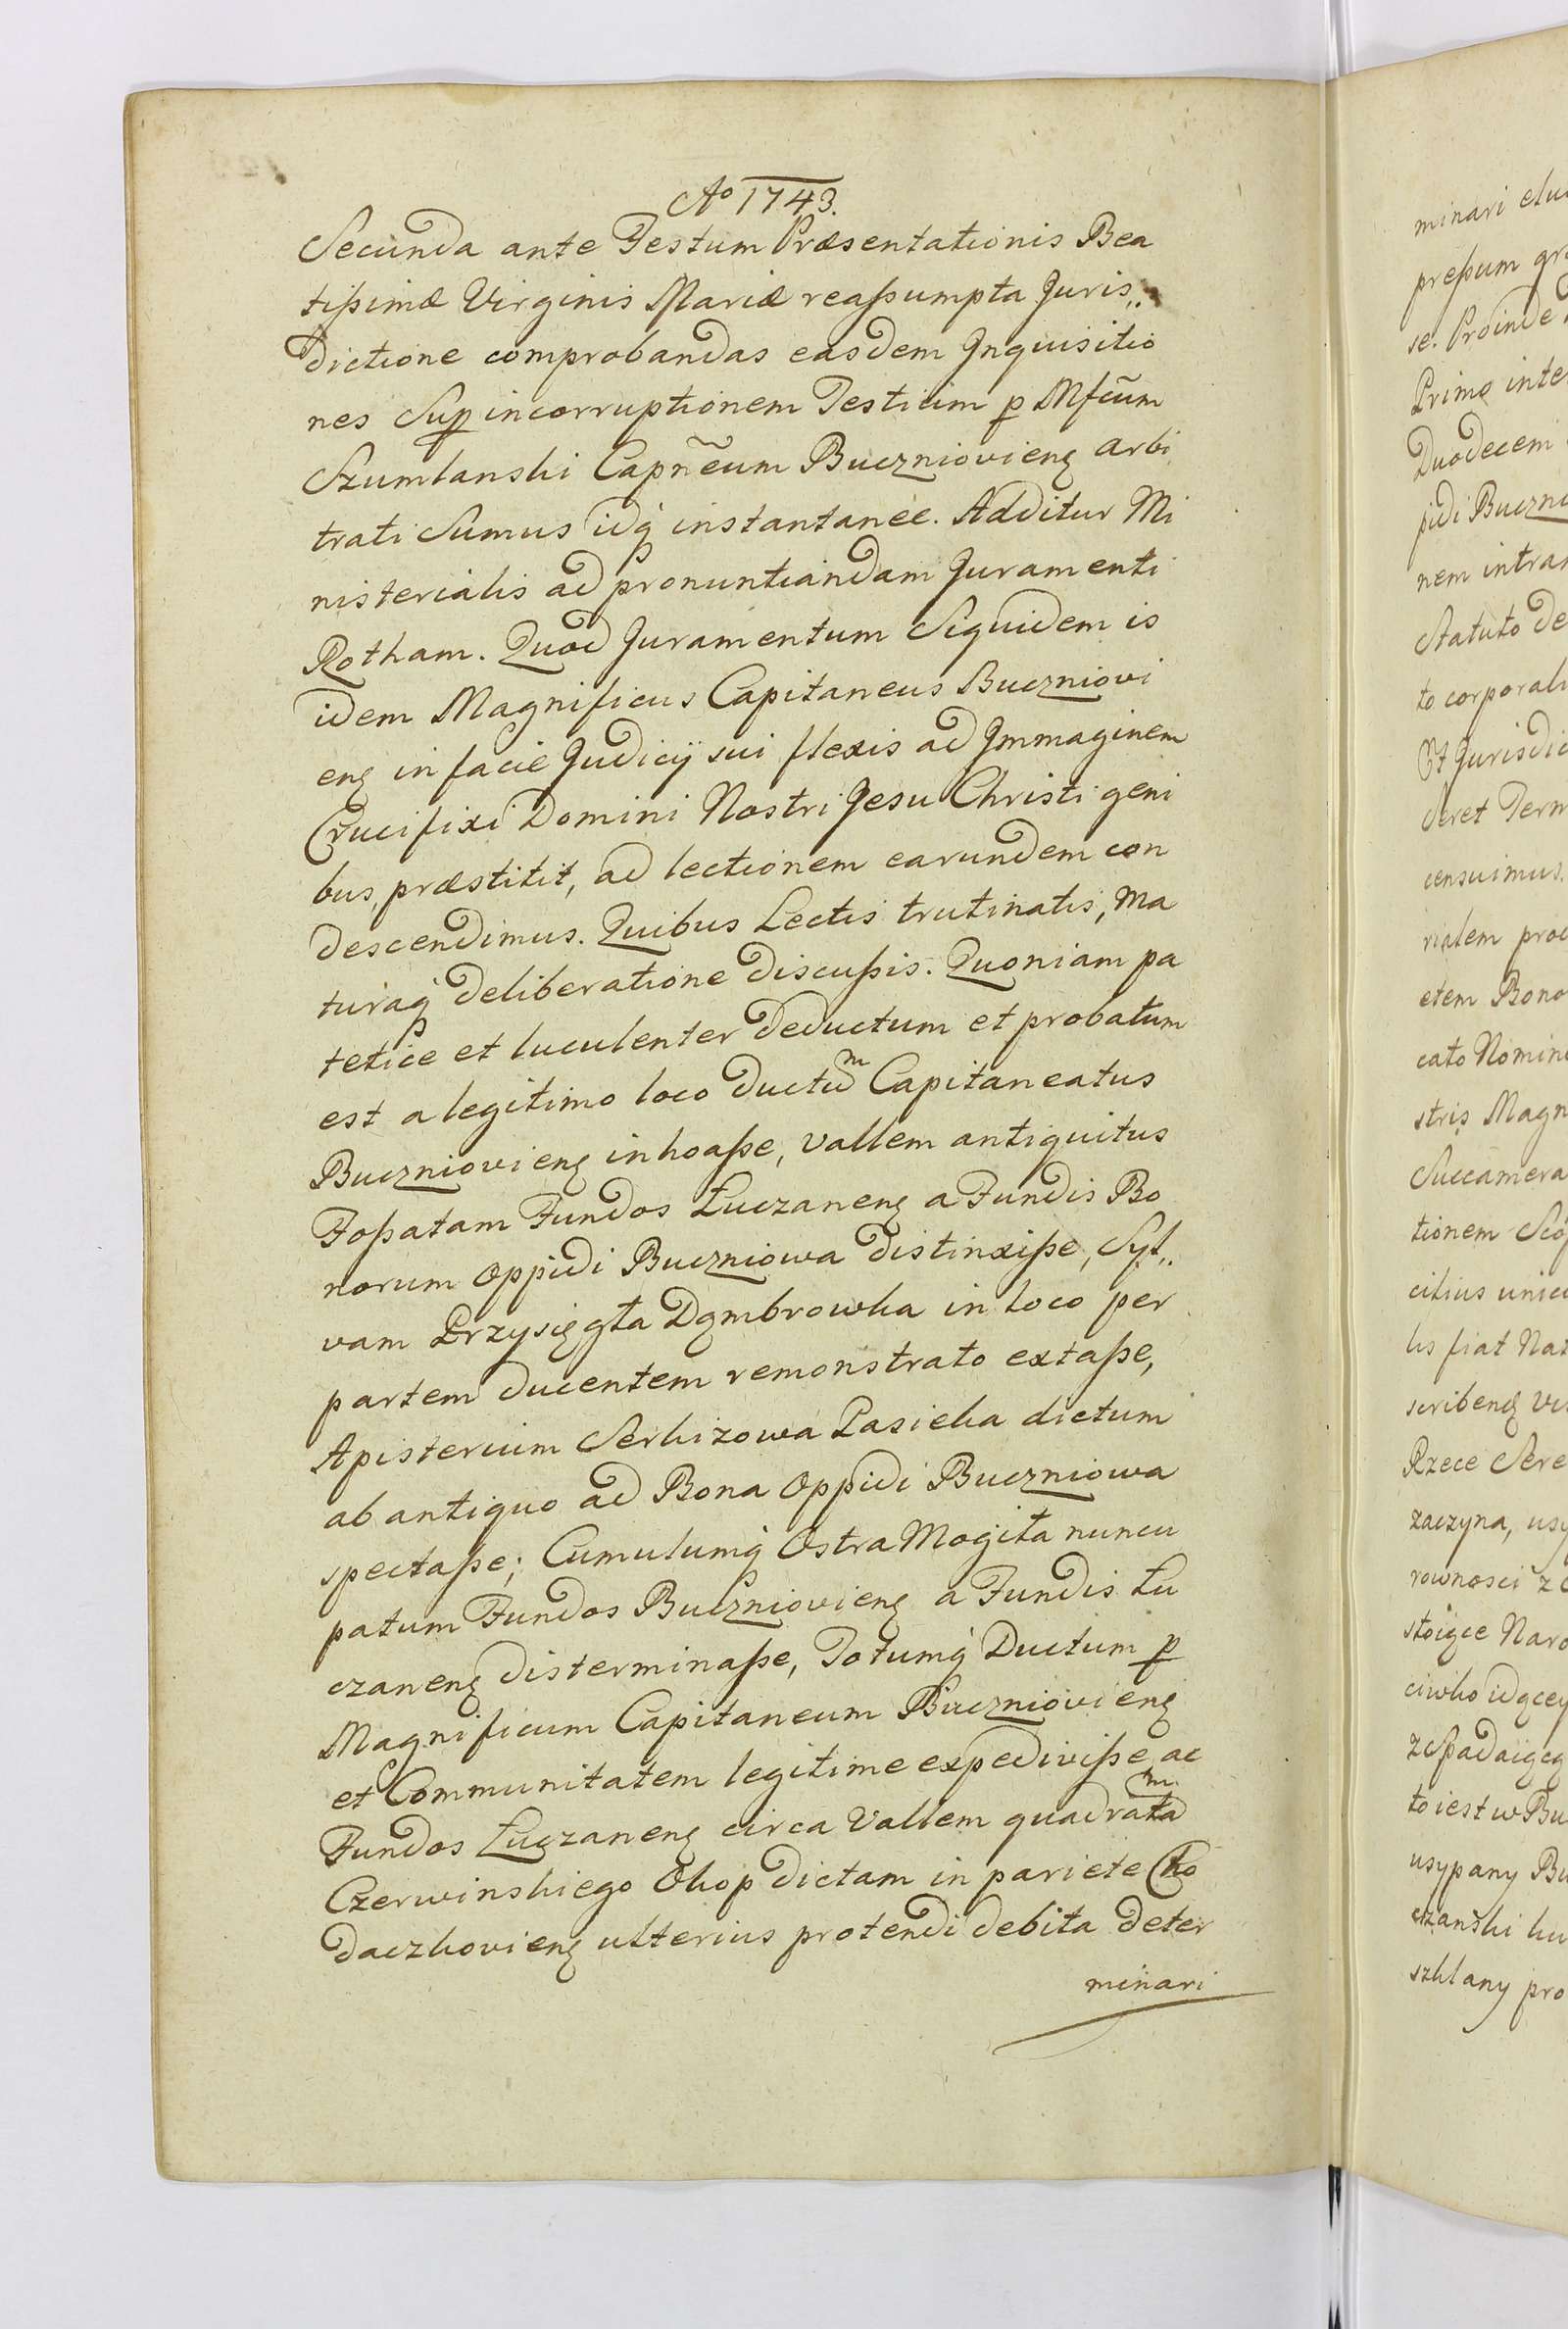 Ao 1743.
Secunda ante Festum Præsentationis Bea
tißimæ Virginis Mariæ reaßumpta Juris„
dictione comprobandas easdem Inquisitio
nes Sup incorruptionem Testium p Mfcũm
Szumlanski Capñeum Buczniovieng arbi
trati Sumus idq́ instantanee. Additur Mi
nisterialis ad pronuntiandam Juramenti
Rotham. Quod Juramentum Siquidem is
idem Magnificus Capitaneus Buczniovi
eng in facie Judicij sui flexis ad Immaginem
Crucifixi Domini Nostri Jesu Christi geni
bus, præstitit, ad lectionem earundem con
descendimus. Quibus Lectis trutinatis, Ma
turaq́ deliberatione discußis. Quoniam pa
tetice et luculenter deductum et probatum
est a legitimo loco ductum Capitaneatus
Buczniovieng inhoaße, vallem antiquitus
Foßatam Fundos Łuczaneng a Fundis Bo
norum Oppidi Buczniowa distinxiße, Syl„
vam Przysięgła Dąmbrowka in loco per
partem ducentem remonstrato extaße,
Apisterium Serkizowa Pasieka dictum
ab antiquo ad Bona Oppidi Buczniowa
spectaße; Cumulumq́ Ostra Mogiła nuncu
patum Fundos Buczniovieng a Fundis Łu
czaneng disterminaße, Totumq́ Ductum p
Magnificum Capitaneum Buczniovieng
et Communitatem legitime expediviße ac
Fundos Łuczaneng circa Vallem quadratam
Czerwinskiego Okop dictam in pariete Cho
daczkovieng ulterius protendi debita deter
minari
minari
preßum
se. Proinde
Primo
Duodecem
pidi
nem
Statuto de
to
Et
Seret
censuimus.
rialem
etem
cato
stris
tionem
citius
lis fiat
Rzece
zaczyna,
rownosci
stoiące
to iest w
usypany
pro